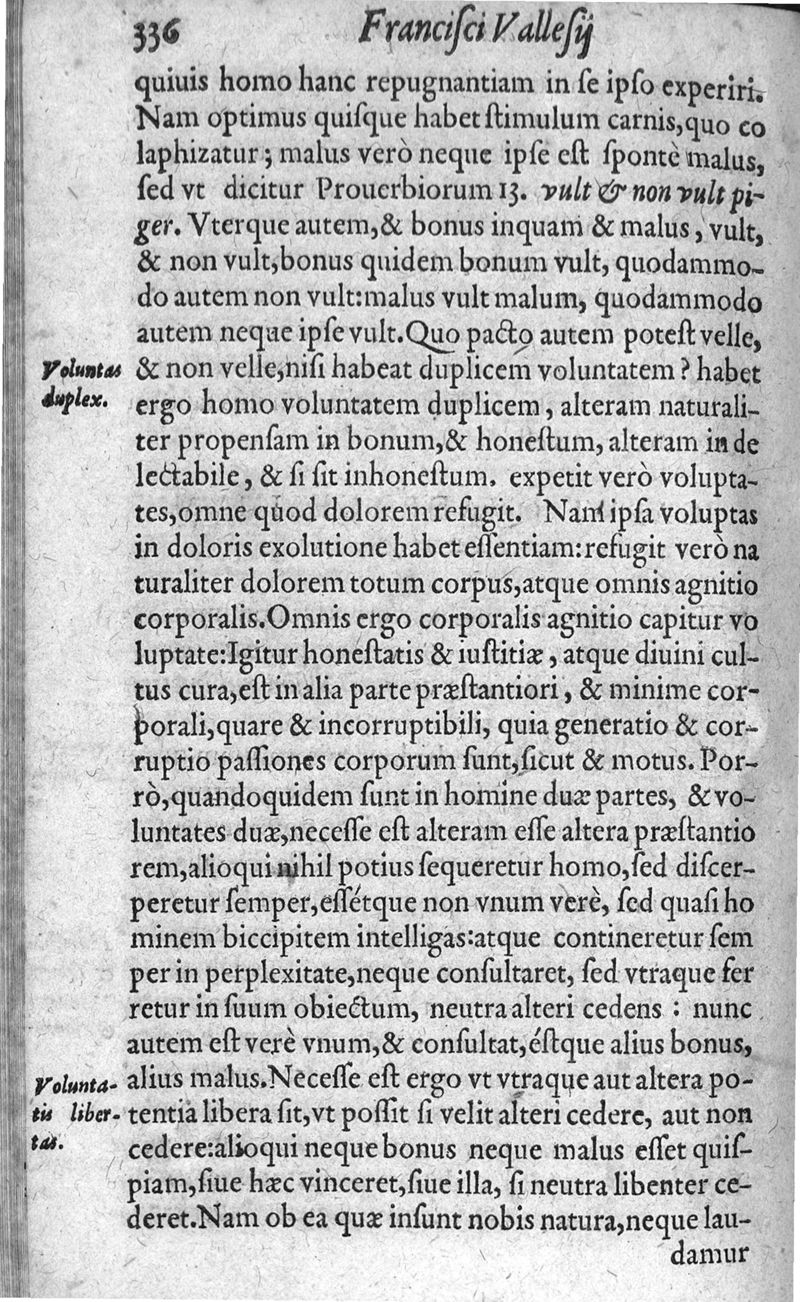 336 Franciſci Valleſij
quiuis homo hanc repugnantiam in ſe ipſo experiri.
Nam optimus quiſque habet ſtimulum carnis, quo co
laphizatur; malus verò neque ipſe eſt ſpontè malus,
ſed vt dicitur Prouerbiorum 13. vult & non vult pi-
ger. Vterque autem, & bonus inquam & malus, vult,
& non vult, bonus quidem bonum vult, quodammo-
do autem non vult: malus vult malum, quodammodo
autem neque ipſe vult. Quo pacto autem poteſt velle,
Voluntas
duplex.
& non velle, niſi habeat duplicem voluntatem? habet
ergo homo voluntatem duplicem, alteram naturali-
ter propenſam in bonum, & honeſtum, alteram in de
lectabile, & ſi ſit inhoneſtum. expetit verò volupta-
tes, omne quod dolorem refugit. Nam ipſa voluptas
in doloris exolutione habet eſſentiam: refugit verò na
turaliter dolorem totum corpus, atque omnis agnitio
corporalis. Omnis ergo corporalis agnitio capitur vo
luptate: Igitur honeſtatis & iuſtitiæ, atque diuini cul-
tus cura, eſt in alia parte præſtantiori, & minime cor-
porali, quare & incorruptibili, quia generatio & cor-
ruptio paſſiones corporum ſunt, ſicut & motus. Por-
rò, quandoquidem ſunt in homine duæ partes, & vo-
luntates duæ, neceſſe eſt alteram eſſe altera præſtantio
rem, alioqui nihil potius ſequeretur homo, ſed diſcer-
peretur ſemper, eſſétque non vnum verè, ſed quaſi ho
minem biccipitem intelligas: atque contineretur ſem
per in perplexitate, neque conſultaret, ſed vtraque fer
retur in ſuum obiectum, neutra alteri cedens: nunc
autem eſt verè vnum, & conſultat, éſtque alius bonus,
Volunta-
tis liber-
tas.
alius malus. Neceſſe eſt ergo vt vtraque aut altera po-
tentia libera ſit, vt poſſit ſi velit alteri cedere, aut non
cedere: alioqui neque bonus neque malus eſſet quiſ-
piam, ſiue hæc vinceret, ſiue illa, ſi neutra libenter ce-
deret. Nam ob ea quæ inſunt nobis natura, neque lau-
damur